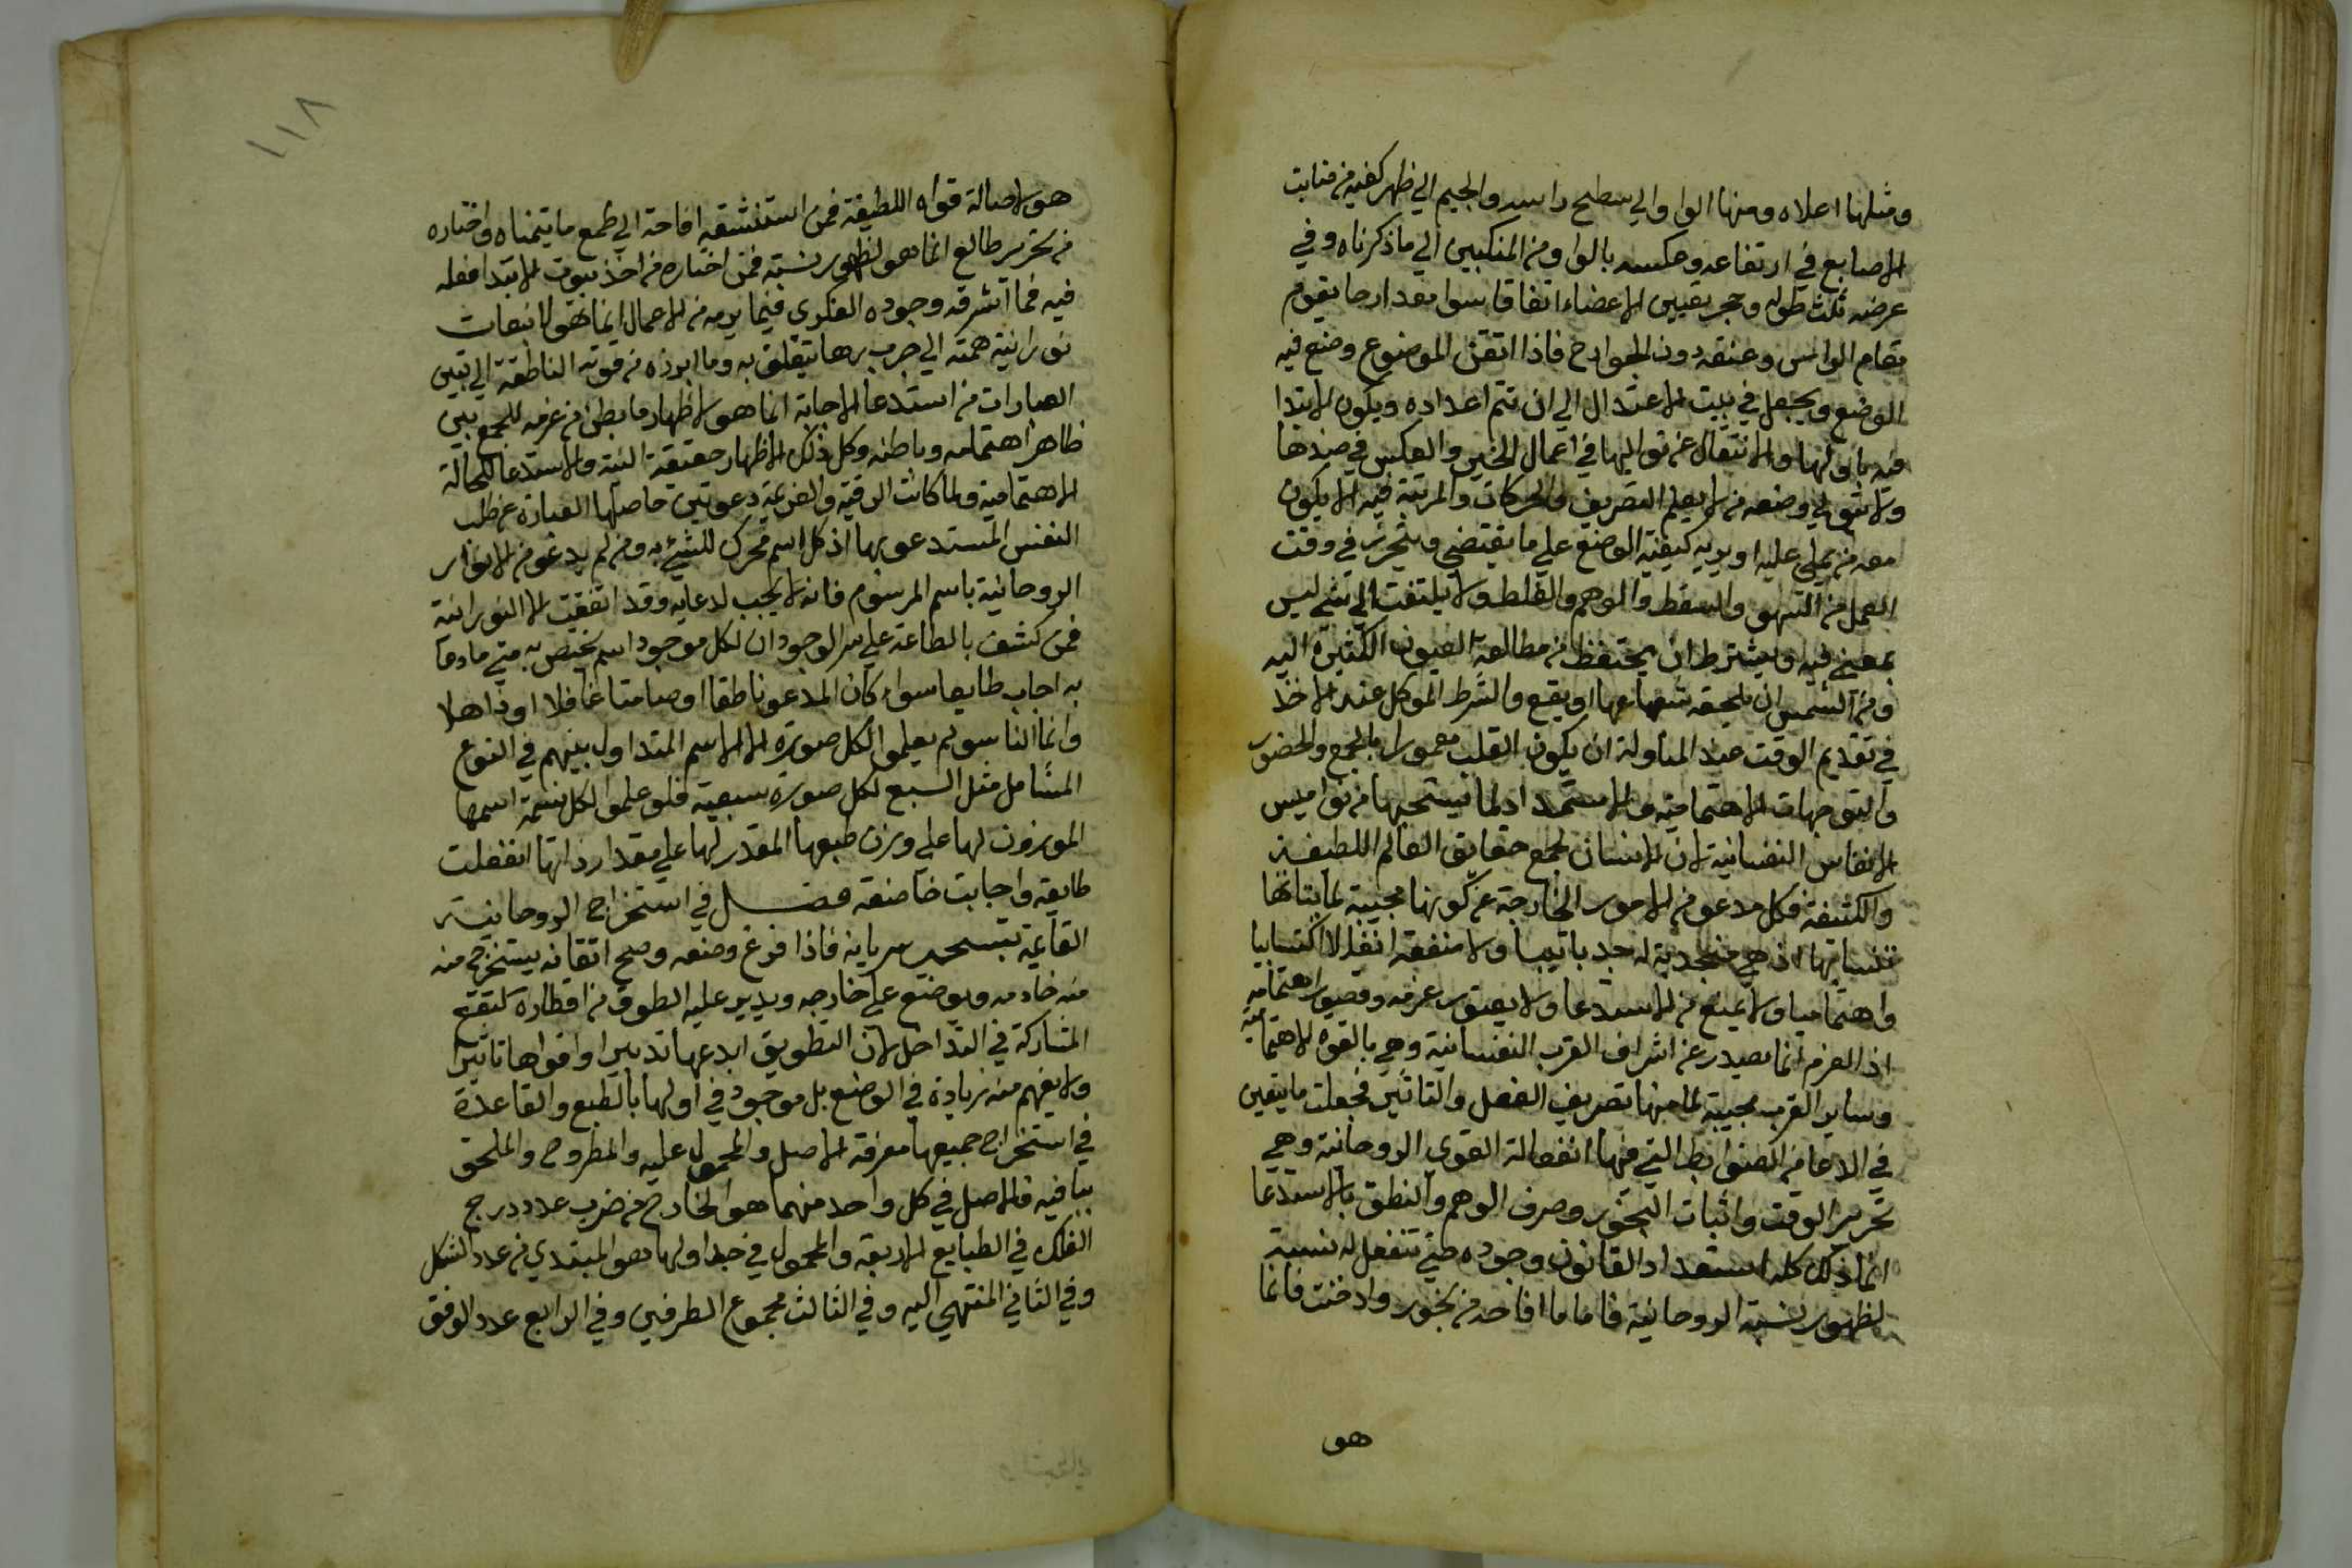 ومثلها اعلاه ومنها الواو الي سطح راسه والجيم الي ظهر كفيه من منابت
الاصابع في ارتفاعه وعكسه بالواو من المنكبين الي ما ذكرناه وفي
عرضه ثلث طوله وحجر تعيين الاعضاء اتفاقا سوا بعد ارحا يقوم
مقام الراس وعنقه دون الجوارح فاذا اتقن الموضوع وضع فيه
الوضع ويجعل في بيت الاعتدال الي ان تتم اعداده ويكون الابتدا
فيه باولها والانتقال عن توالیها في اعمال الخير والعكس في ضدها
ولا يتولي وضعه من لا يعلم التصريف والحركات والمرتبة فيه الا يكون
معه من يملي عليه او يريه كيفية الوضع علي ما يقتضي ويتحرز في وقت
العمل من السهو والسقط والوهم والغلط ولا يلتفت الي شي ليس
بمعني فيه ويشترط ان يحتفظ من مطالعة العيون الكثيرة اليه
ومن الشمس ان يلحقه شعاعها او يقع والشرط الموكل عند الاخذ
في تقديم الوقت عند المناولة ان يكون القلب معمورا بالجمع والحضور
والتوجهات الاهتمامية والاستمداد لما يستجبها من نواميس
الانفاس النفسانية لان الانسان مجمع حقايق العالم اللطيفة
والكثيفة فكل مدعو من الامور الخارجة عن كونها مجيبة لما يناتها
نفساتها اذ هي منجذبة له جذبا تيبا ولا منفعة انفعلا اكتسابيا
واهتماميا ولا يمنع من الاستدعا ولا يعيق عزمه وقصور اهتمامه
اذ العزم انما يصدر عن اشراف القرب النفسانية وهي بالقوه الاهتمامية
وساير القرب مجيبة لما منها تصريف الفعل والتاثير فجعلت ما يتعين
في الادعا من الضوابط التي فيها انفعالة القوي الروحانية وهي
تحرير الوقت واثبات البخور وصرف الوهم والنطق بالاستدعا
انما ذلك كله استعداد القانون وجوده طي تنفعل له نسبة
لظهور نسبة الروحانية فاما ما افاحه من بخور وادخنت فانما
هو
١١٨
هو لاصالة قواه اللطيفة فمن استنشقه افاحة الي طمع ما يتمناه واختاره
من تحرير طالع انما هو لظهور نسبة فمن اختاره من اخذ بيوت الابتدا فعله
فيه فما اشرقه وجوده الفكري فيما يرمه من الاعمال انما هو لانبعاث
نورانية همته الي جرب برها يتعلق به وما ابرزه من قوته الناطقة الي تبين
العبارات من استدعا الاجابة انما هو لاظهار ما بطن من عزمه للجمع بين
ظاهر اهتمامه وباطنه وكل ذلك لاظهار حقيقة النية والاستدعا للحالة
الاهتمامية ولما كانت الرقية والعزيمة دعوتين حاصلها العبارة عن طلب
النفس المستدعو بها اذ كل اسم محرك للشيء به ومن لم يدعو من الانوار
الروحانية باسم المرسوم فانه لا يجيب لدعايه وقد اتفقت الا النورانية
فمن كشف بالطاعة علي سر الوجود ان لكل موجود اسم يختص به متي ما دعا
به اجاب طايعا سواء كان المدعو ناطقا او صامتا غافلا او ذاهلا
وانما الناس لم يعلموا لكل صورة الا الاسم المتداول بينهم في النوع
الشامل مثل السبع لكل صورة سبعية فلو علموا لكل نسمة اسمها
الموزون لها علي وزن طبعها المقدر لها علي مقدار ذاتها انفعلت
طايعه واجابت خاضعه فصل في استخراج الروحانية
القايمة بتسخير سريانه فاذا فرغ وضعه وصح اتقانه يستخرج منه
منه خادمه ويوضع علي خارجه ويدير عليه الطوق من اقطاره لتقع
المشاركة في التداخل لان التطويق ابدعها تدبيرا واقواها تاثيرا
ولا يفهم منه زيادة في الوضع بل موجود في اولها بالطبع والقاعدة
في استخراج جميعها معرفة الاصل والمحمول عليه والمطروح والملحق
بباقيه فالاصل في كل واحد منهما هو الخارج من ضرب عدد درج
الفلك في الطبايع الاربعة والمحمول في خبد اولها هو المبتدي من عدد الشكل
وفي الثاني المنتهي اليه وفي الثالث مجموع الطرفين وفي الرابع عدد الوفق